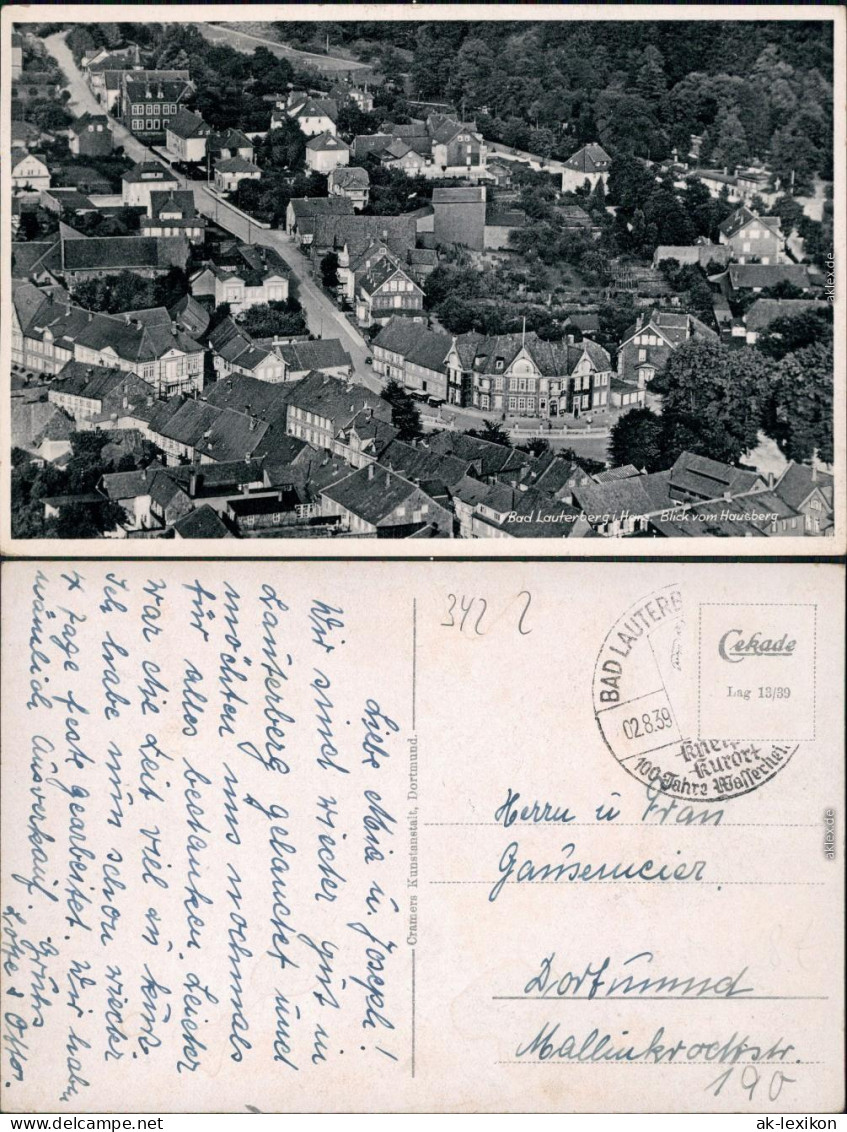 Bad Lauterberg i. Harz. Blick vom Hausberg
342 2
BAD LAUTERB
02.8.39
Kneipp
Kurort
100 Jahre Wasserheil
Cekade
Lag 13/39
Herrn u Frau
Gausemeier.
Dortmund
Mallinkrodtstr.
190
Cramers Kunstanstalt, Dortmund.
Liebe Mia u. Joseph!
Wir sind wieder gut in
Lauterberg gelandet und
möchten uns nochmals
für alles bedanken. Leider
war die Zeit viel zu kurz
Ich habe nun schon wieder
4 Tage fest gearbeitet. Wir haben
nämlich Ausverkauf. Gruß
& Otto.
aklex.de
aklex.de
ak-lexikon